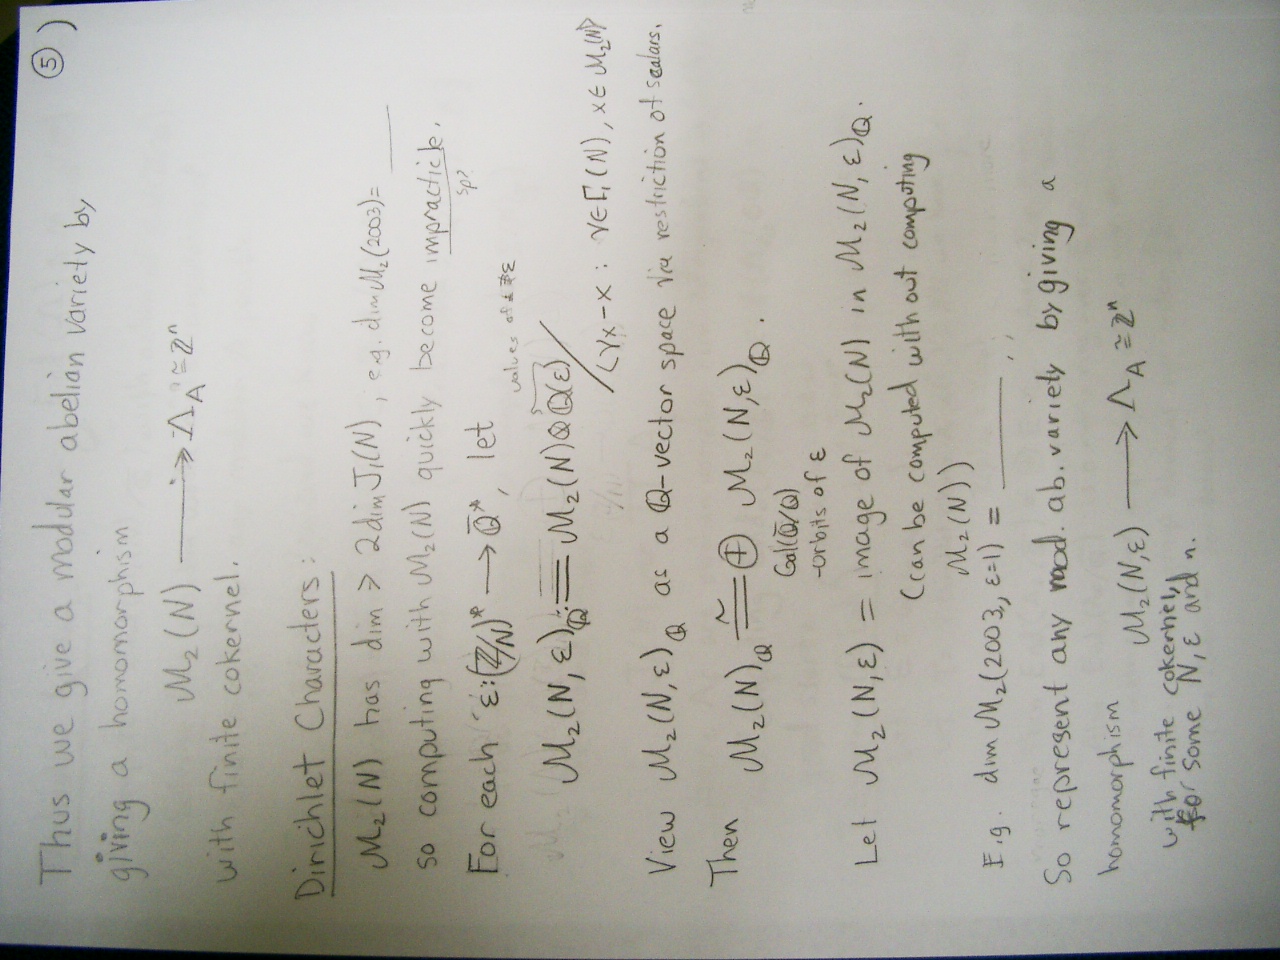 ⑤ )
Thus we give a modular abelian variety by
giving a homomorphism
M₂(N) ⟶ Λ_A ≅ ℤⁿ
with finite cokernel.
Dirichlet Characters:
M₂(N) has dim > 2dim J₁(N), e.g. dim M₂(2003)= ____
so computing with M₂(N) quickly become impracticle.
sp?
For each ε: (ℤ/N)* ⟶ Q̄*, let
values of ε
M₂(N, ε)_ℚ := M₂(N) ⊗ ℚ(ε) / ⟨γx - x : γ ∈ Γ₁(N), x ∈ M₂(N)⟩
View M₂(N, ε)_ℚ as a ℚ-vector space via restriction of scalars.
Then M₂(N)_ℚ ≅ ⊕ M₂(N, ε)_ℚ.
Gal(Q̄/ℚ)
-orbits of ε
Let M₂(N, ε) = image of M₂(N) in M₂(N, ε)_ℚ.
(can be computed without computing
M₂(N))
E.g. dim M₂(2003, ε=1) = ____
So represent any mod. ab. variety by giving a
homomorphism
M₂(N, ε) ⟶ Λ_A ≅ ℤⁿ
with finite cokernel,
for some N, ε and n.